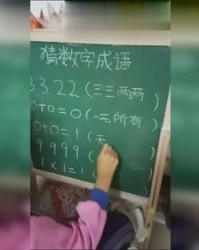 猜数字成语
3322(三三两两)
0+0=0(一无所有)
0+0=1(无
9999(
1×1=1(